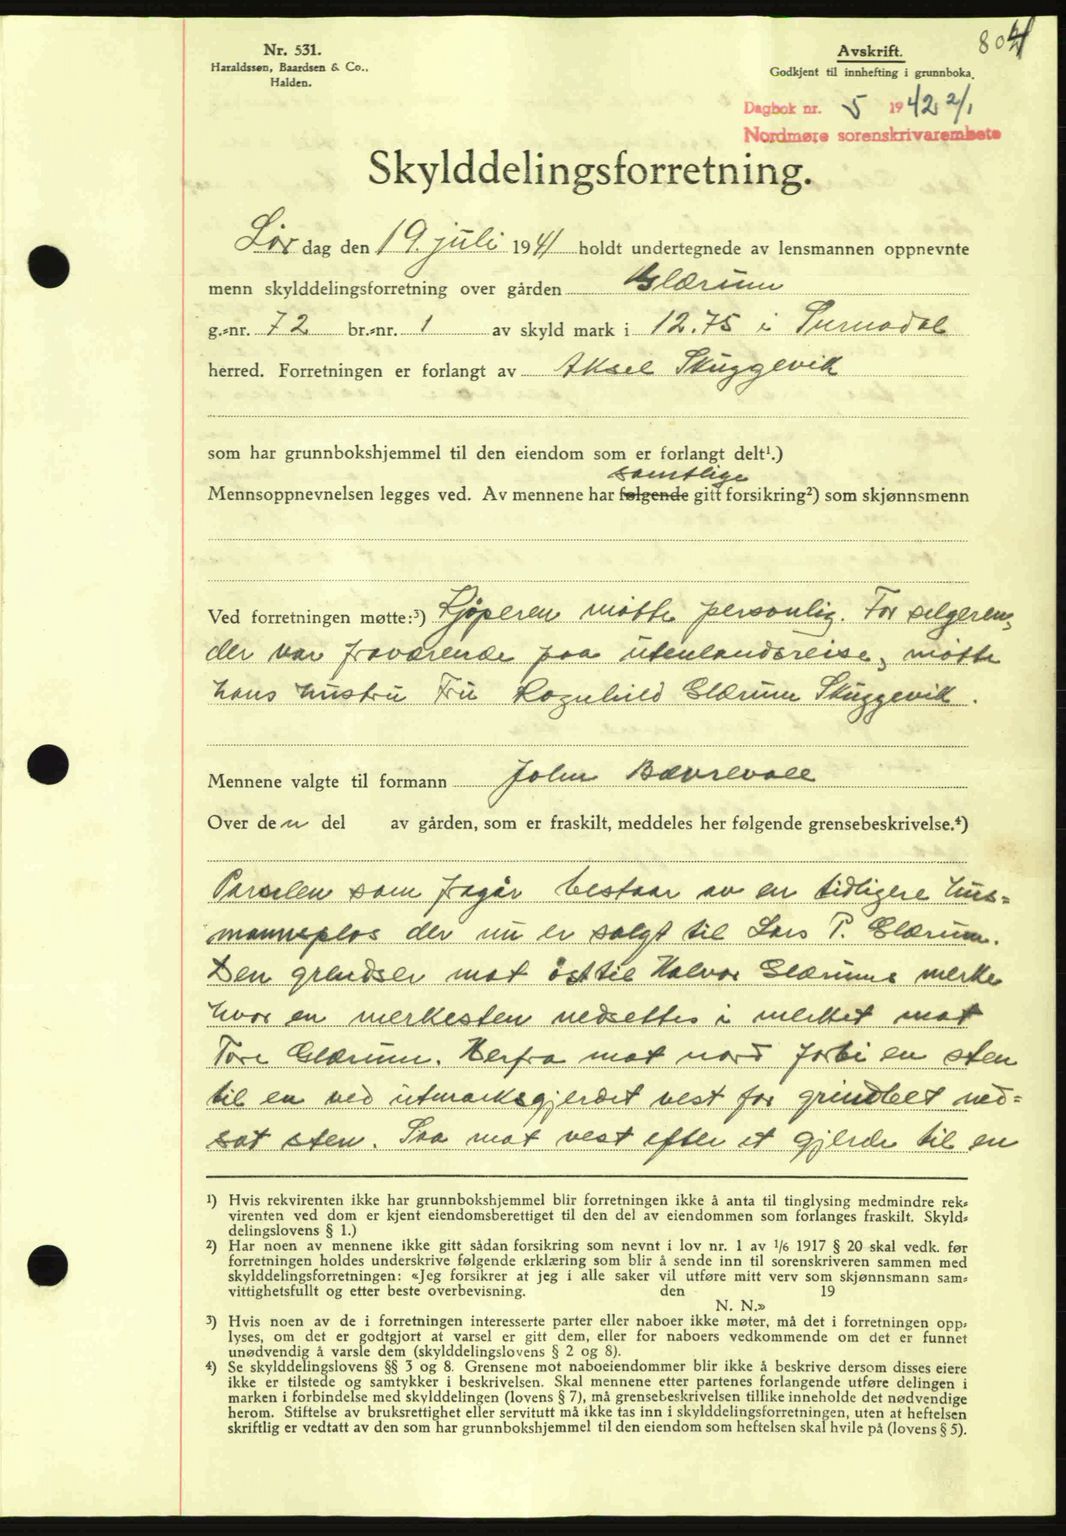 804
Nr. 531.
Haraldssøn, Baardsen & Co.,
Halden.
Avskrift.
Godkjent til innhefting i grunnboka.
Dagbok nr. 5 1942 2/1
Nordmøre sorenskrivarembete
Skylddelingsforretning.
Lør dag den 19. juli 1941 holdt undertegnede av lensmannen oppnevnte
menn skylddelingsforretning over gården Glærum
g.-nr. 72 br.-nr. 1 av skyld mark i 12.75 i Surnadal
herred. Forretningen er forlangt av Aksel Skuggevik
som har grunnbokshjemmel til den eiendom som er forlangt delt¹.)
samtlige
Mennsoppnevnelsen legges ved. Av mennene har følgende gitt forsikring²) som skjønnsmenn
Ved forretningen møtte:³) Kjøperen møtte personlig. For selgeren,
der var fraværende paa utenlandsreise, møtte
hans hustru Fru Ragnhild Glærum Skuggevik.
Mennene valgte til formann John Bævrevoll
Over den del av gården, som er fraskilt, meddeles her følgende grensebeskrivelse.⁴)
Parselen som fragår bestaar av en tidligere hus-
mannsplas der nu er solgt til Lars P. Glærum.
Den grendser mot øst til Halvor Glærums merke
hvor en merkesten nedsettes i merket mot
Tore Glærum. Herfra mot nord forbi en sten
til en ved utmarksgjerdet vest for grindleet ned-
sat sten. Saa mot vest efter et gjerde til en
¹) Hvis rekvirenten ikke har grunnbokshjemmel blir forretningen ikke å anta til tinglysing medmindre rek-
virenten ved dom er kjent eiendomsberettiget til den del av eiendommen som forlanges fraskilt. Skyld-
delingslovens § 1.)
²) Har noen av mennene ikke gitt sådan forsikring som nevnt i lov nr. 1 av ¹/6 1917 § 20 skal vedk. før
forretningen holdes underskrive følgende erklæring som blir å sende inn til sorenskriveren sammen med
skylddelingsforretningen: «Jeg forsikrer at jeg i alle saker vil utføre mitt verv som skjønnsmann sam-
vittighetsfullt og etter beste overbevisning. den 19
N. N.»
³) Hvis noen av de i forretningen interesserte parter eller naboer ikke møter, må det i forretningen opp-
lyses, om det er godtgjort at varsel er gitt dem, eller for naboers vedkommende om det er funnet
unødvendig å varsle dem (skylddelingslovens § 2 og 8).
⁴) Se skylddelingslovens §§ 3 og 8. Grensene mot naboeiendommer blir ikke å beskrive dersom disses eiere
ikke er tilstede og samtykker i beskrivelsen. Skal mennene etter partenes forlangende utføre delingen i
marken i forbindelse med skylddelingen (lovens § 7), må grensebeskrivelsen tillike inneholde det nødvendige
herom. Stiftelse av bruksrettighet eller servitutt må ikke tas inn i skylddelingsforretningen, uten at heftelsen
skriftlig er vedtatt av den som har grunnbokshjemmel til den eiendom som heftelsen skal hvile på (lovens § 5).